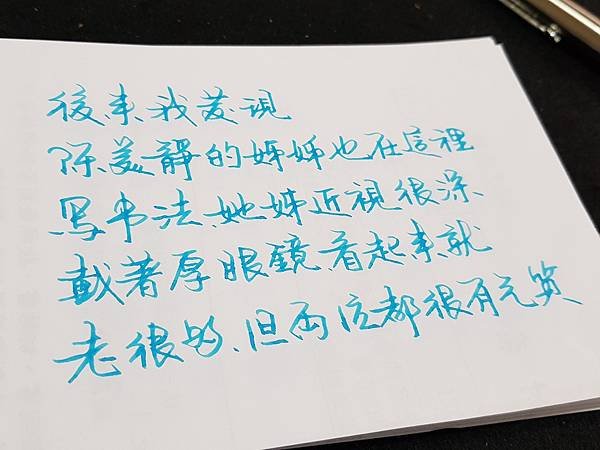 後来我发現
陈美靜的姊姊也在這裡
写书法、她姊近視很深、
戴著厚眼鏡、看起来就
老很多、但兩位都很有元質